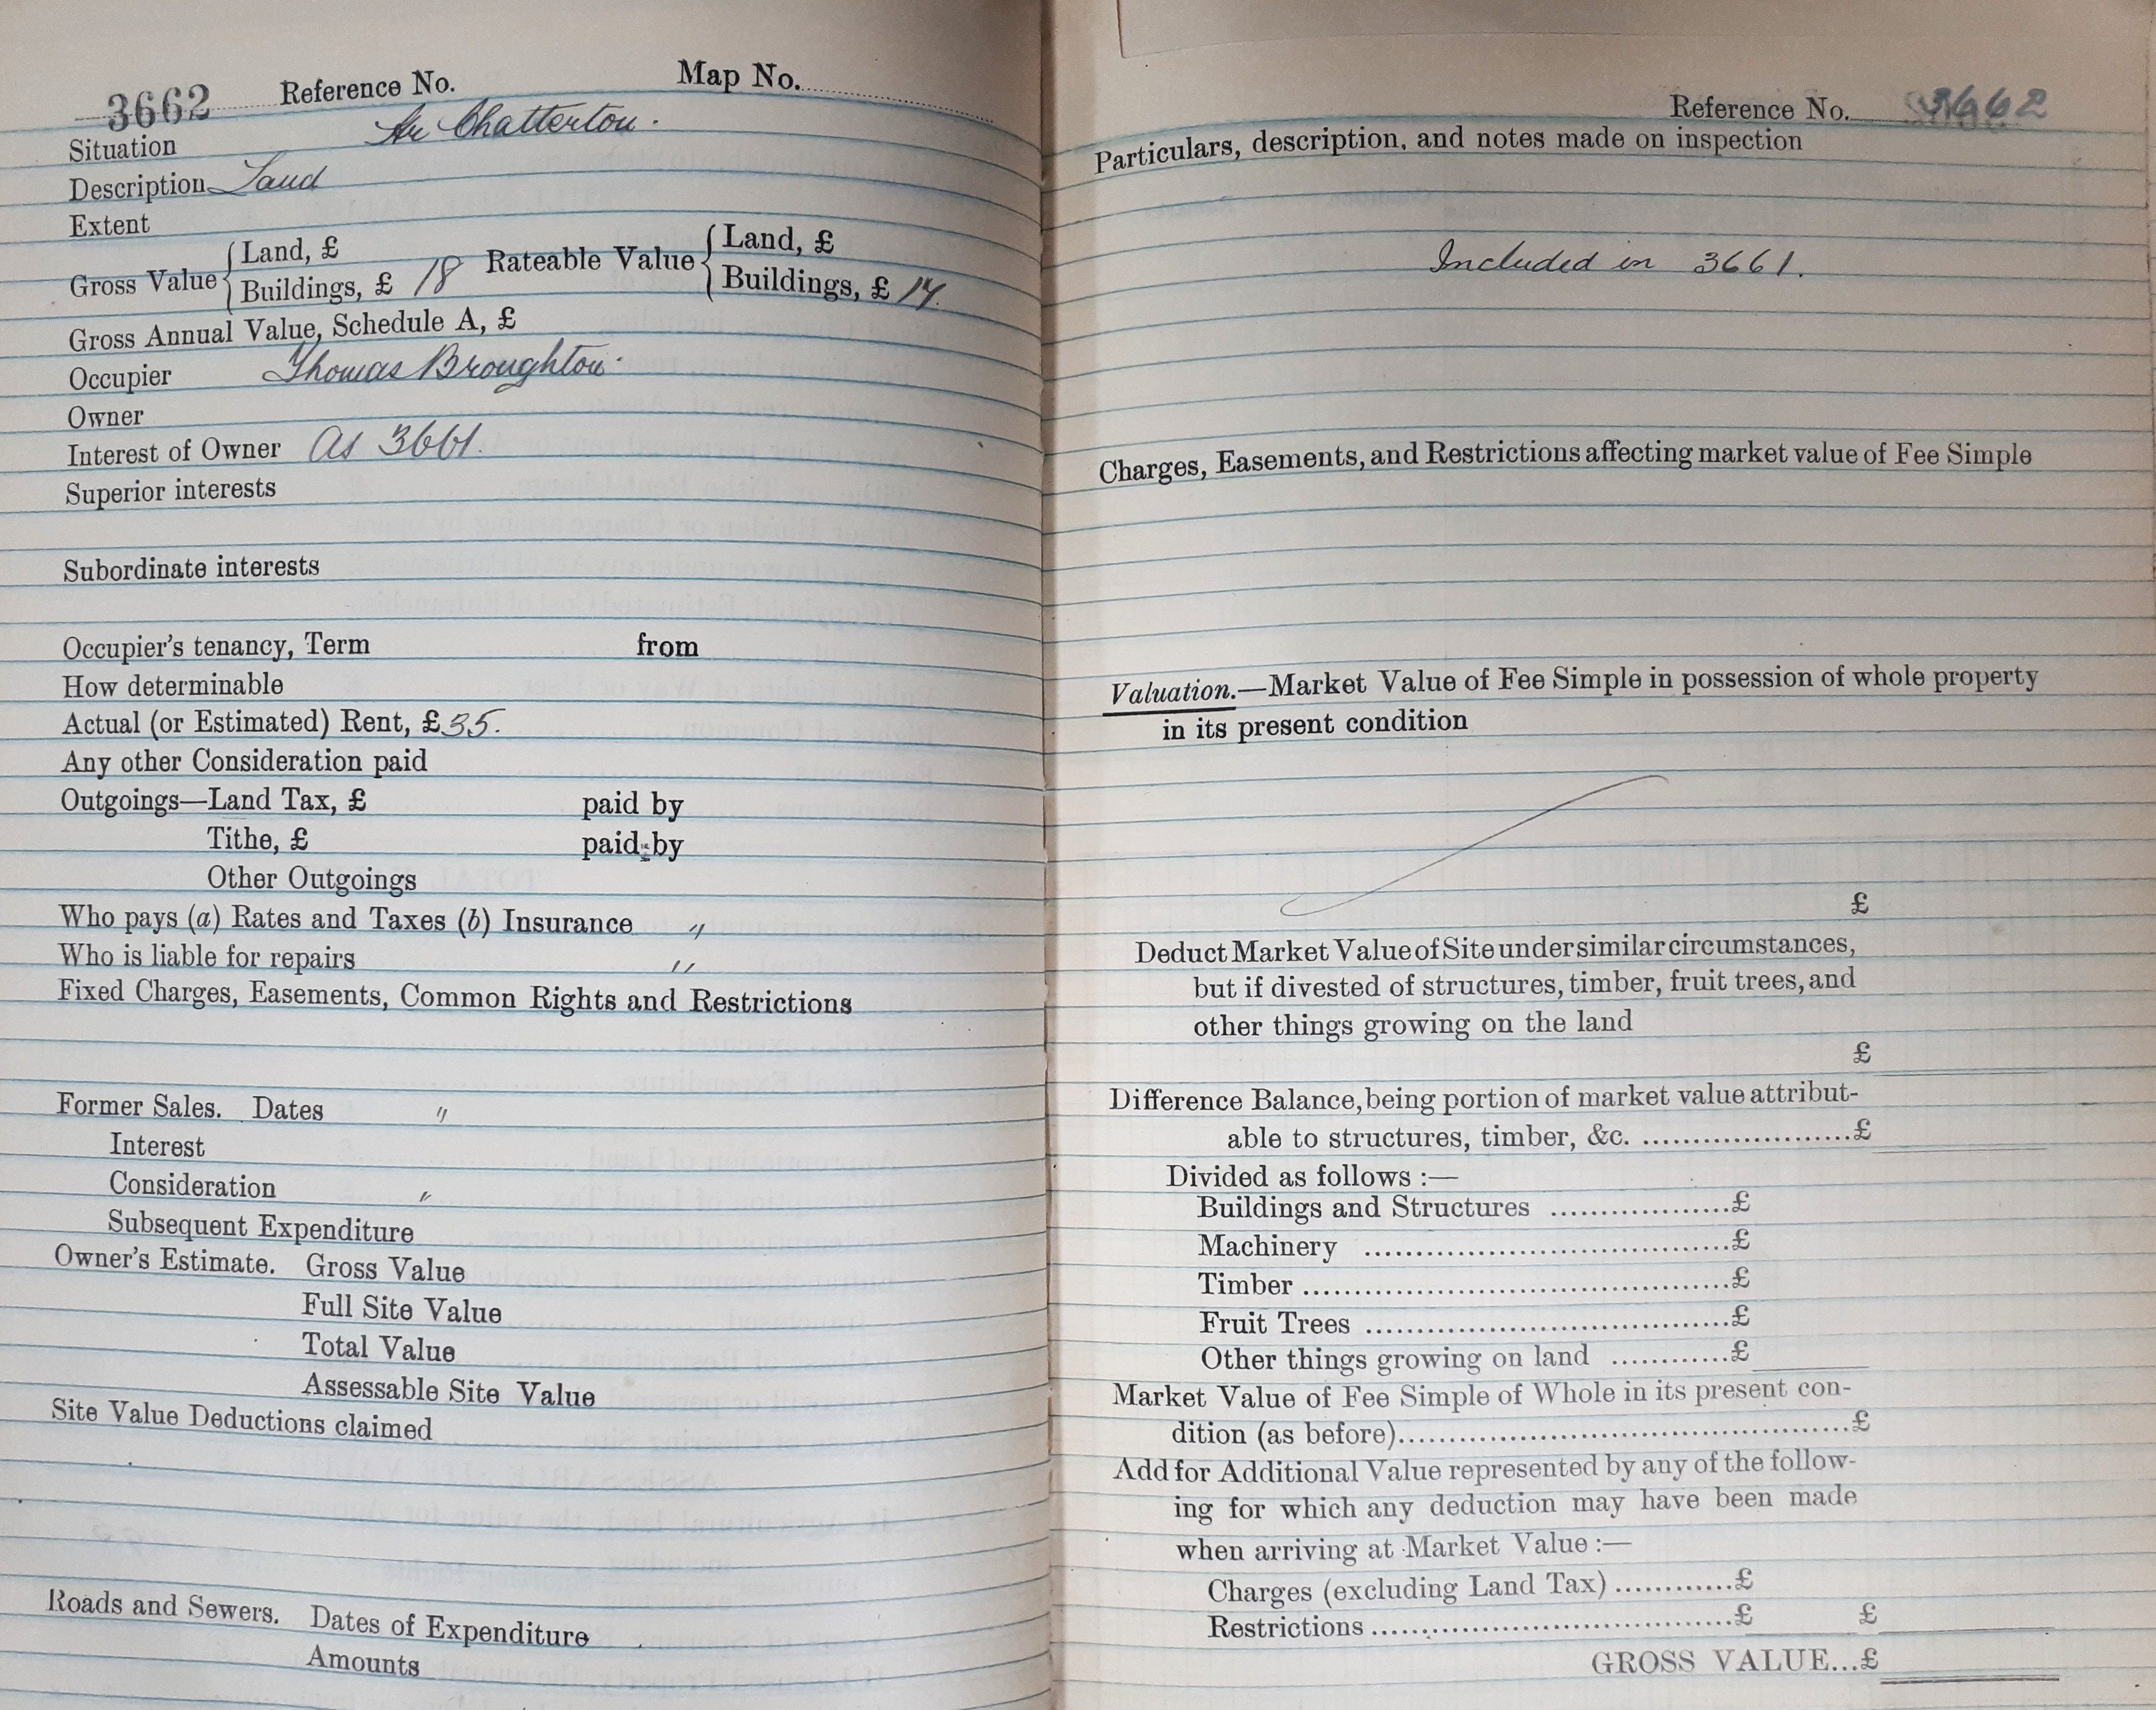 3662 Reference No. Map No.
Situation Nr Chatterton.
Description Land
Extent
Gross Value { Land, £ Rateable Value { Land, £
Buildings, £ 18 Buildings, £
Gross Annual Value, Schedule A, £
Occupier Thomas Broughton.
Owner
Interest of Owner As 3661.
Superior interests
Subordinate interests
Occupier's tenancy, Term from
How determinable
Actual (or Estimated) Rent, £35.
Any other Consideration paid
Outgoings—Land Tax, £ paid by
Tithe, £ paid by
Other Outgoings
Who pays (a) Rates and Taxes (b) Insurance "
Who is liable for repairs "
Fixed Charges, Easements, Common Rights and Restrictions
Former Sales. Dates "
Interest
Consideration "
Subsequent Expenditure
Owner's Estimate. Gross Value
Full Site Value
Total Value
Assessable Site Value
Site Value Deductions claimed
Roads and Sewers. Dates of Expenditure
Amounts
Reference No. 3662
Particulars, description, and notes made on inspection
Included in 3661.
Charges, Easements, and Restrictions affecting market value of Fee Simple
Valuation.—Market Value of Fee Simple in possession of whole property
in its present condition
£
Deduct Market Value of Site under similar circumstances,
but if divested of structures, timber, fruit trees, and
other things growing on the land
£
Difference Balance, being portion of market value attribut-
able to structures, timber, &c. ......................£
Divided as follows :—
Buildings and Structures ..................£
Machinery ......................................£
Timber ............................................£
Fruit Trees ......................................£
Other things growing on land ............£
Market Value of Fee Simple of Whole in its present con-
dition (as before)................................................£
Add for Additional Value represented by any of the follow-
ing for which any deduction may have been made
when arriving at Market Value :—
Charges (excluding Land Tax) ............£
Restrictions ......................................£ £
GROSS VALUE...£